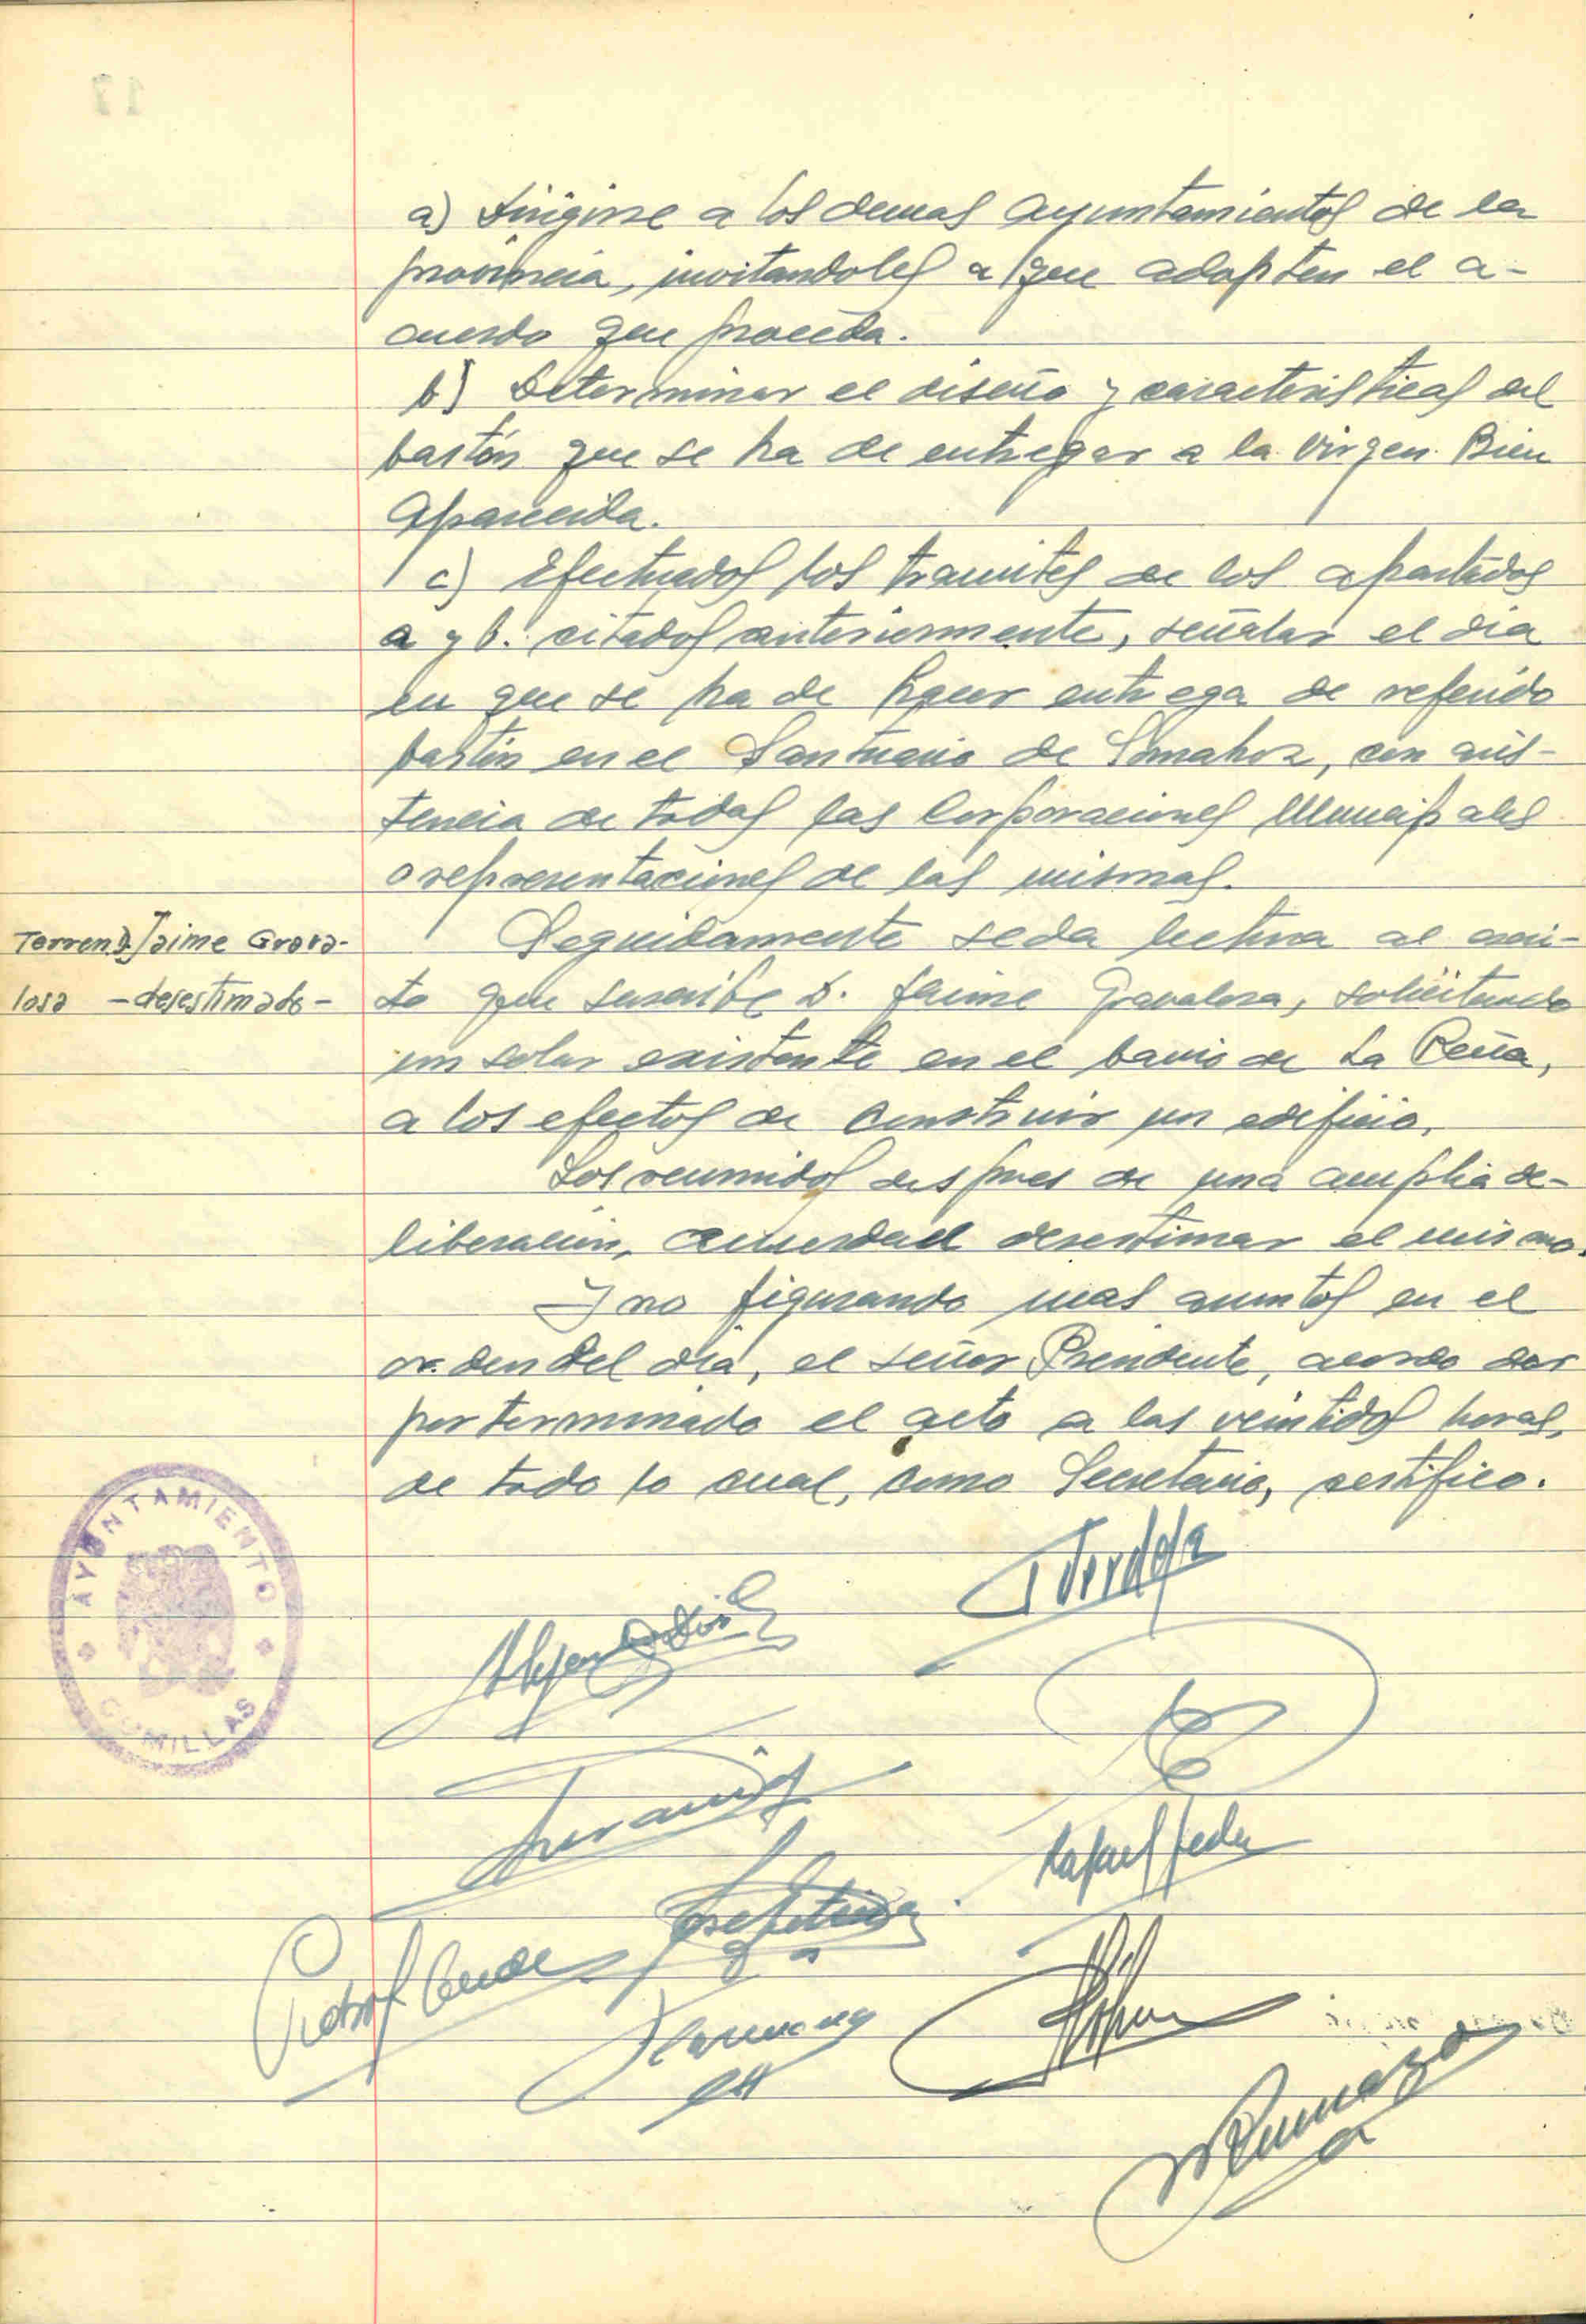 a) Dirigirse a los demas Ayuntamientos de la
provincia, invitandoles a que adopten el a-
cuerdo que proceda.
b) Determinar el diseño y caracteristicas del
bastón que se ha de entregar a la Virgen Bien
Aparecida.
c) Efectuados los tramites de los apartados
a y b. citados anteriormente, señalar el dia
en que se ha de hacer entrega de referido
bastón en el Santuario de Somahoz, con asis-
tencia de todas las Corporaciones Municipales
o representaciones de las mismas.
Terreno D. Jaime Grava-
losa - desestimado -
Seguidamente se da lectura al escri-
to que suscribe D. Jaime Gravalosa, solicitando
un solar existente en el barrio de La Peña,
a los efectos de construir un edificio.
Los reunidos despues de una amplia de-
liberación, acuerdan desestimar el mismo.
Y no figurando mas asuntos en el
orden del dia, el señor Presidente, acordo dar
por terminado el acto a las veintidos horas,
de todo lo cual, como Secretario, certifico.
AYUNTAMIENTO
COMILLAS
Rafael
Pedro Conde